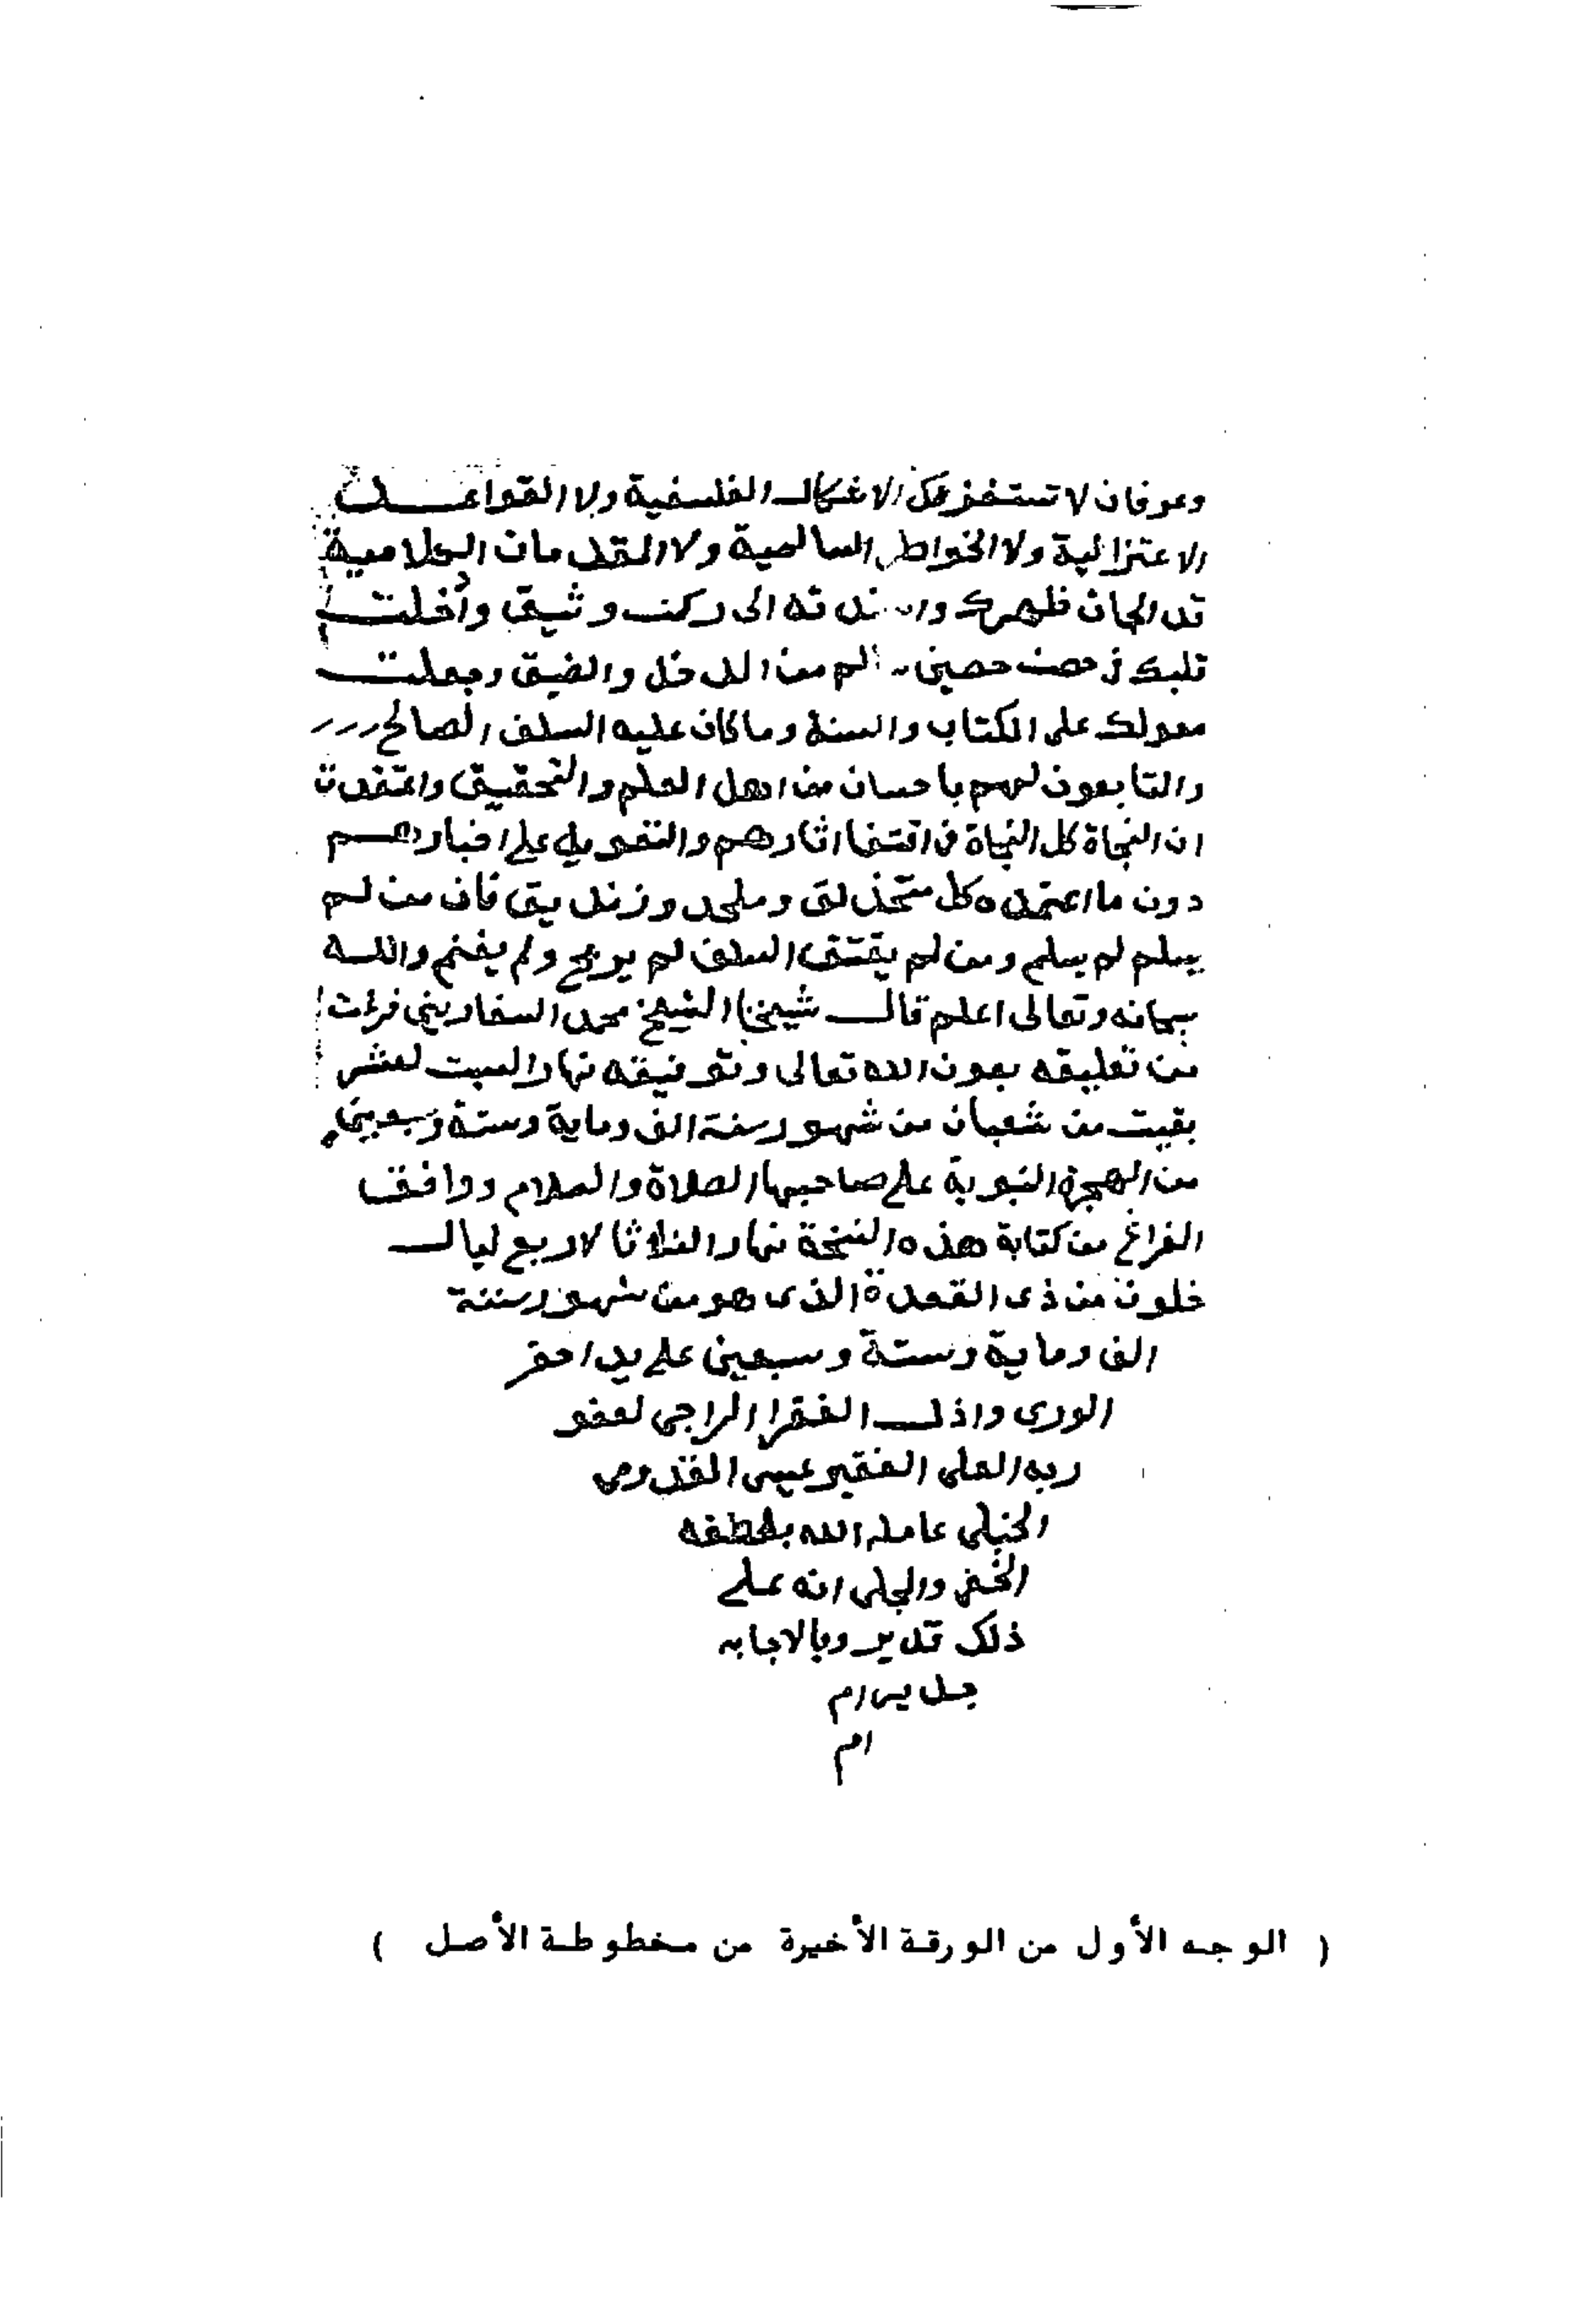 وعرفان لا تستفزك الاشكال الفلسفية ولا القواعد
الاعتزالية ولا الخواطر السالمية ولا المقدمات الكلامية
قد الجات ظهرك واسندته الى ركن وثيق وأدخلت
قلبك في حصن حصين من الدخل والضيق وجعلت
معولك على الكتاب والسنة وما كان عليه السلف الصالح
والتابعون لهم باحسان من اهل العلم والتحقيق واعتقدت
ان النجاة كل النجاة في اقتفا اثارهم والتعويل على اخبارهم
دون ما اعتمده كل متحذلق وملحد وزنديق فان من لم
يسلم لم يسلم ومن لم يقتف السلف لم يربح ولم يغنم والله
سبحانه وتعالى اعلم قال شيخنا الشيخ محمد السفاريني فرغت
من تعليقه بعون الله تعالى وتوفيقه نهار السبت لعشر
بقيت من شعبان من شهور سنة الف وماية وستة وسبعين
من الهجرة النبوية على صاحبها الصلاة والسلام ووافق
الفراغ من كتابة هذه النسخة نهار الثلاثا لاربع ليال
خلون من ذى القعدة الذى هو من شهور سنة
الف وماية وستة وسبعين على يد احقر
الورى واذل الفقرا الراجى لعفو
ربه العلى الفقير عيسى القدومى
الحنبلى عامله الله بلطفه
الخفى والجلى انه على
ذلك قدير وبالاجابه
جدير ام
ام
( الوجه الأول من الورقة الأخيرة من مخطوطة الأصل )